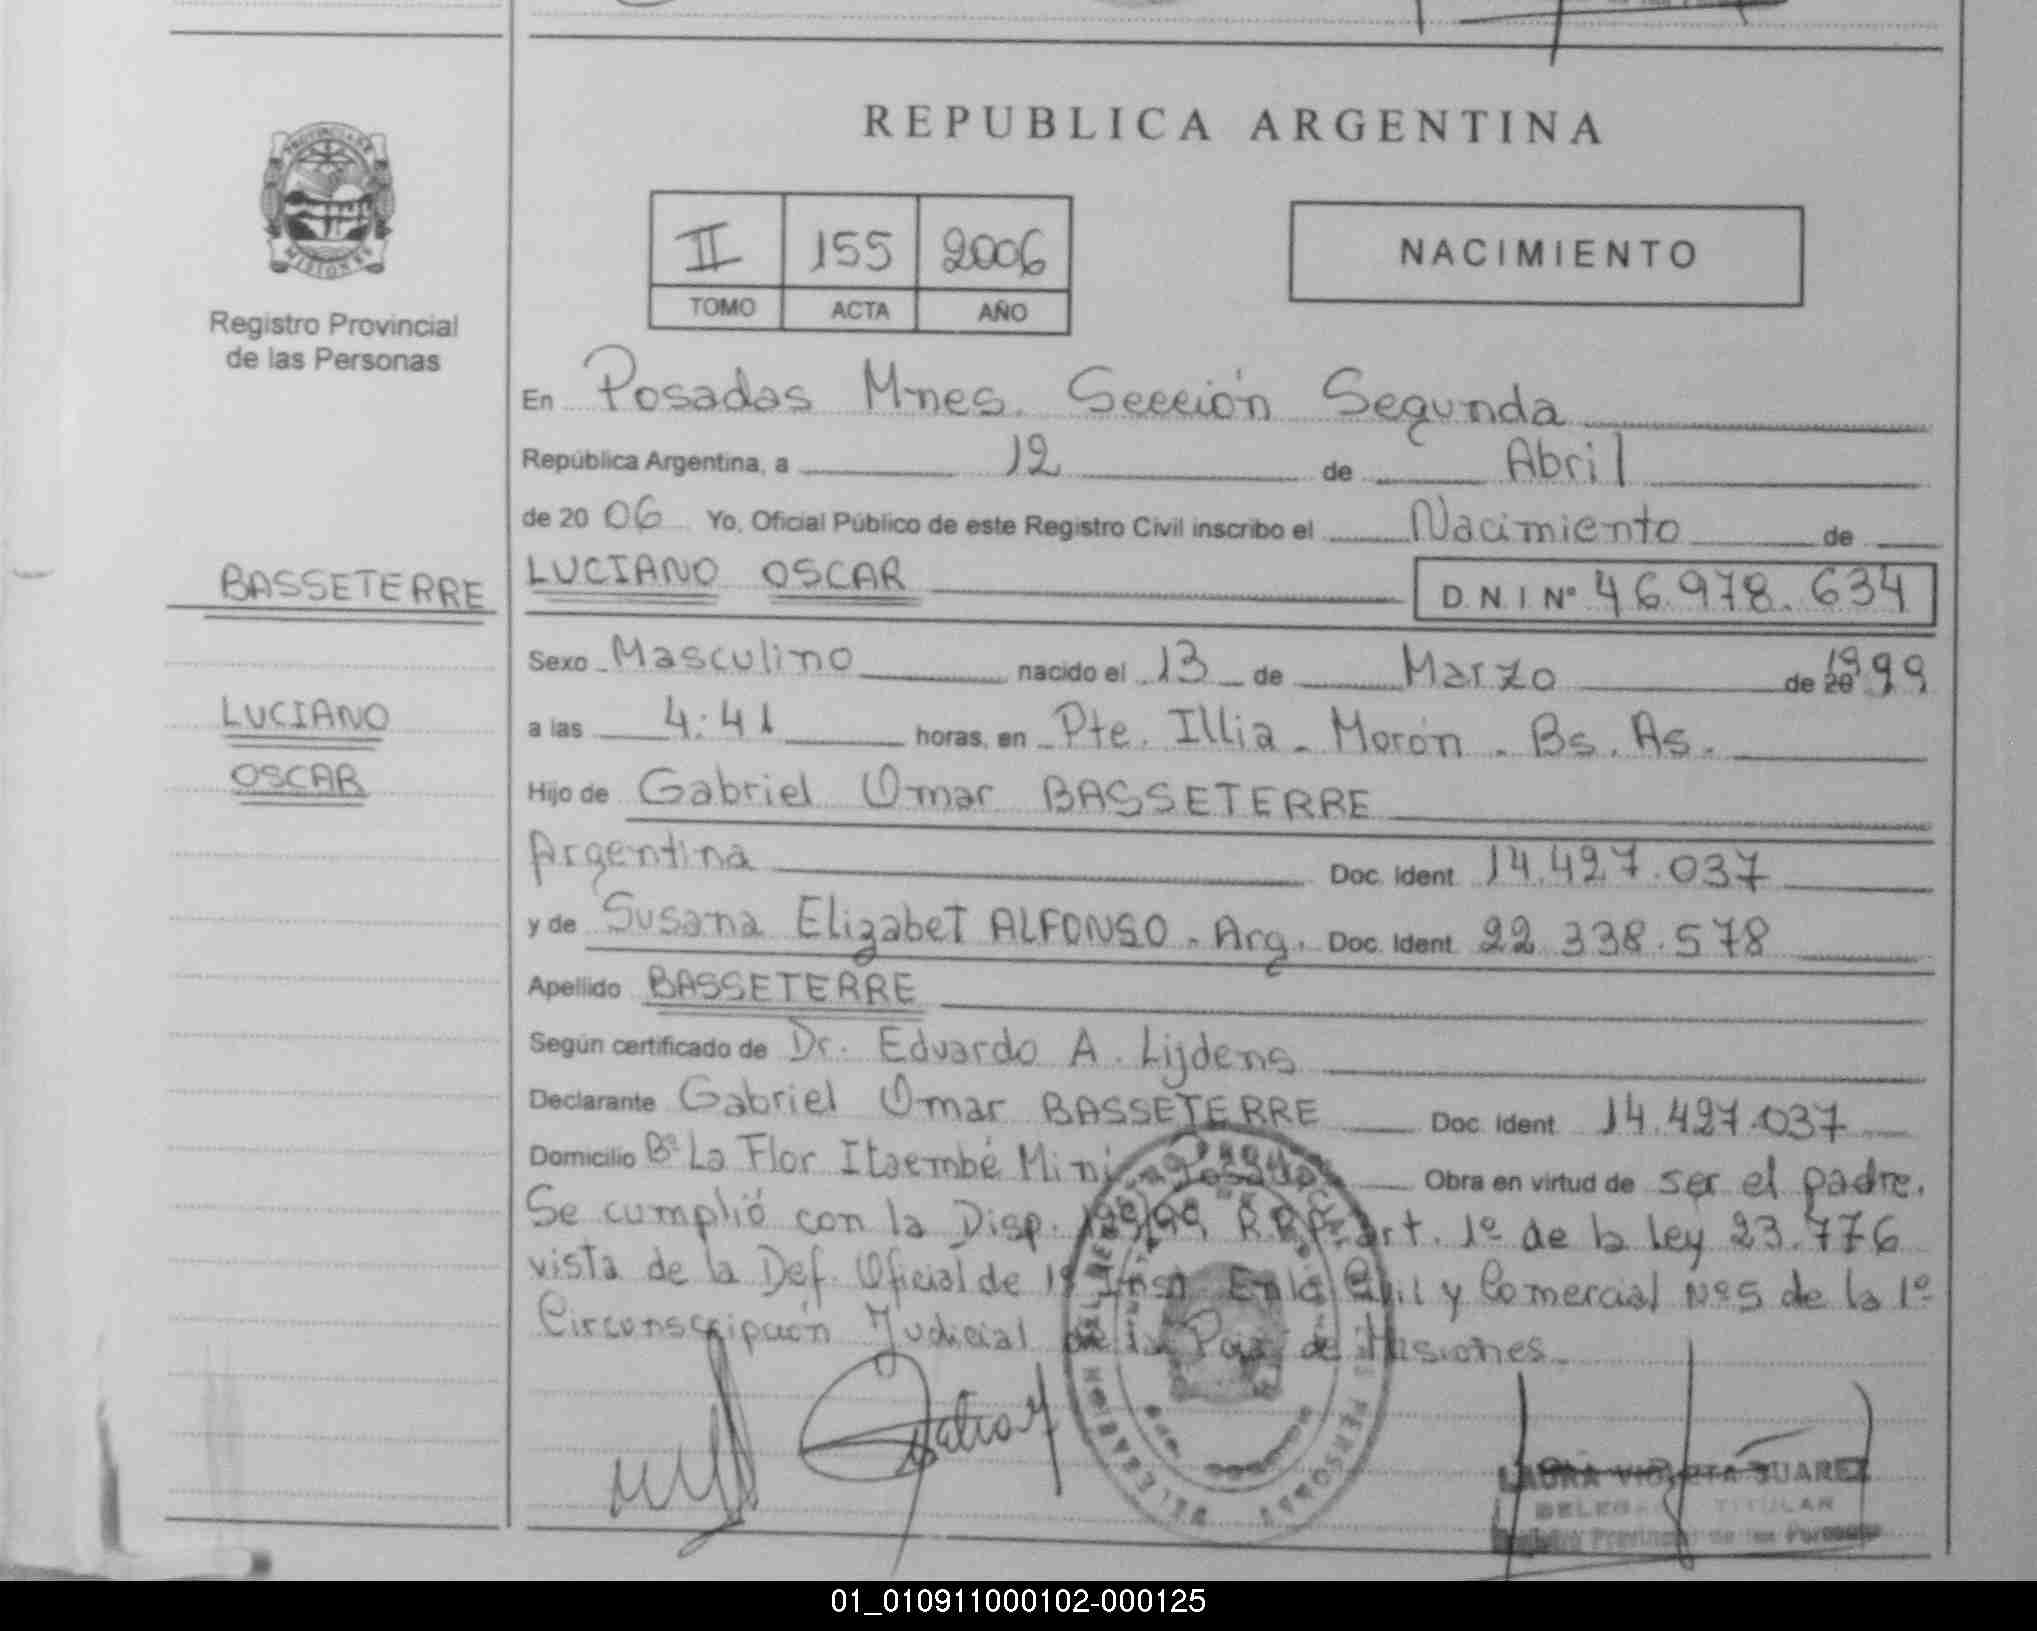 REPUBLICA ARGENTINA
II 155 2006
TOMO ACTA AÑO
NACIMIENTO
PROVINCIA DE
MISIONES
Registro Provincial
de las Personas
BASSETERRE
LUCIANO
OSCAR
En Posadas Mnes. Sección Segunda
República Argentina, a 12 de Abril
de 20 06 Yo, Oficial Público de este Registro Civil inscribo el Nacimiento de
LUCIANO OSCAR D.N.I. Nº 46.978.634
Sexo Masculino nacido el 13 de Marzo de 1999
a las 4:41 horas, en Pte. Illia - Morón - Bs. As.
Hijo de Gabriel Omar BASSETERRE
Argentina Doc. Ident. 14.427.037
y de Susana Elizabet ALFONSO - Arg. Doc. Ident. 22.338.578
Apellido BASSETERRE
Según certificado de Dr. Eduardo A. Lijdens
Declarante Gabriel Omar BASSETERRE Doc. Ident. 14.427.037
Domicilio Bº La Flor Itaembé Miní - Posadas Obra en virtud de ser el padre.
Se cumplió con la Disp. R.P.P. art. 1º de la ley 23.776
vista de la Def. Oficial de 1º Inst. En lo Civil y Comercial Nº 5 de la 1º
Circunscripción Judicial de la Pcia. de Misiones.
LAURA VIOLETA SUAREZ
DELEGADA TITULAR
Registro Provincial de las Personas
01_010911000102-000125